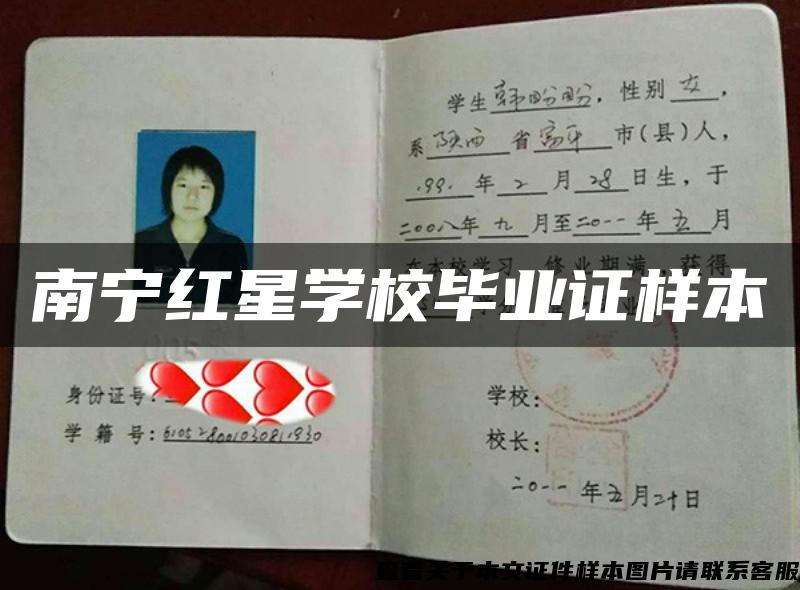 学生韩盼盼，性别女，
系陕西省富平市(县)人，
1991年2月28日生，于
二00八年九月至二0一一年五月
在本校学习 修业期满，获得
南宁红星学校毕业证样本
身份证号：
学籍号：610528001030811930
学校：
校长：
二0一一年五月二十日
查看关于本文证件样本图片请联系客服